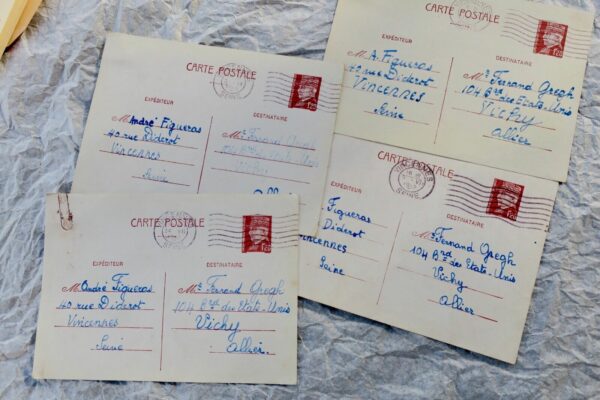 CARTE POSTALE
EXPÉDITEUR
DESTINATAIRE
Mr A. Figueras
40 rue Diderot
VINCENNES
Seine
Mr Fernand Gregh
104 Brd des Etats-Unis
Vichy
Allier
CARTE POSTALE
EXPÉDITEUR
DESTINATAIRE
M. André Figueras
40 rue Diderot
Vincennes
Seine
Mr Fernand Gregh
104 Brd des Etats-Unis
Vichy
Allier
CARTE POSTALE
DESTINATAIRE
Figueras
Diderot
Vincennes
Seine
Mr Fernand Gregh
104 Brd des Etats-Unis
Vichy
Allier
CARTE POSTALE
EXPÉDITEUR
DESTINATAIRE
M. André Figueras
40 rue Diderot
Vincennes
Seine
Mr Fernand Gregh
104 Brd des Etats-Unis
Vichy
Allier.